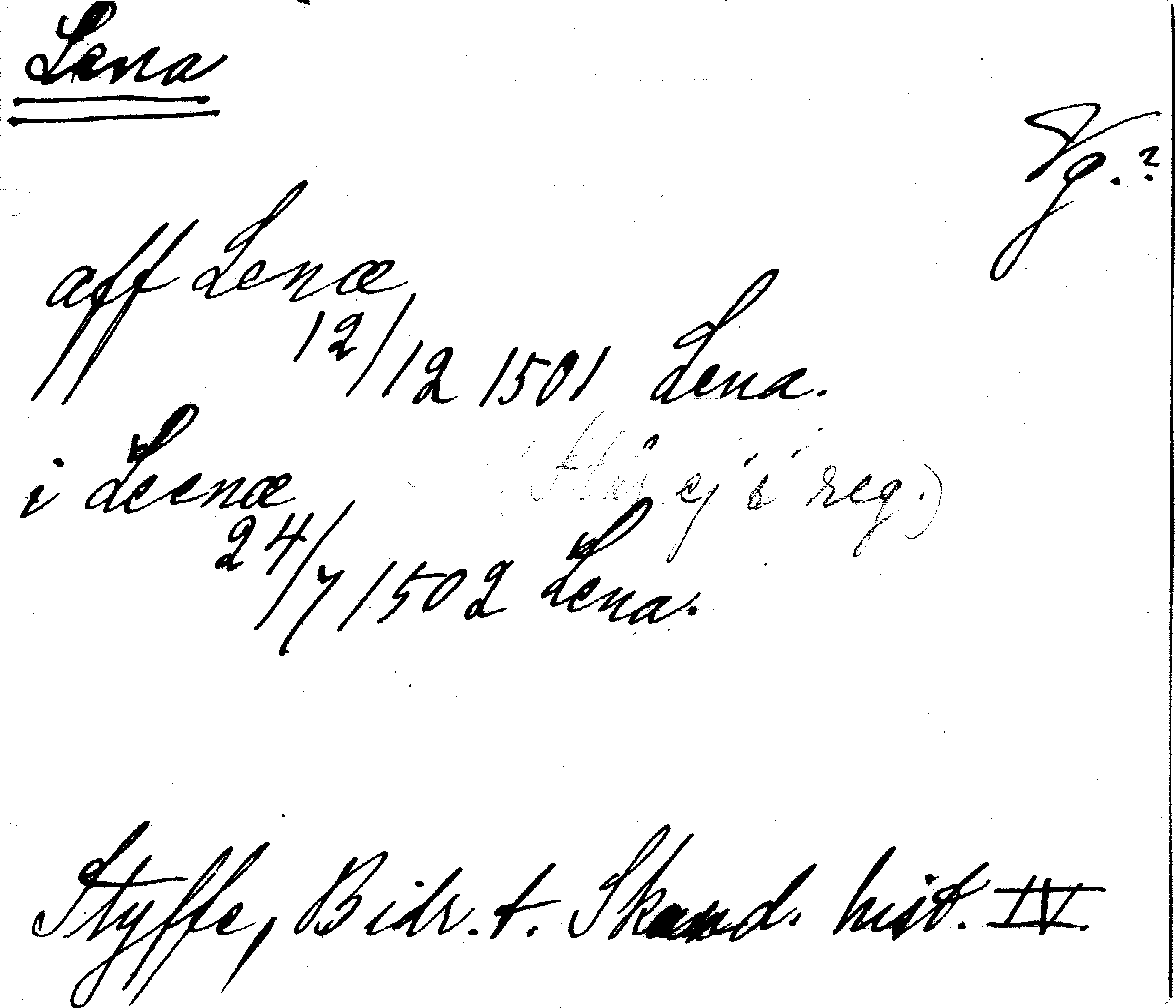 Lena
Vg.?
aff Lenæ
12/12 1501 Lena.
i Leenæ
(Står ej i reg.)
24/7 1502 Lena.
Styffe, Bidr. t. Skand. hist. IV.